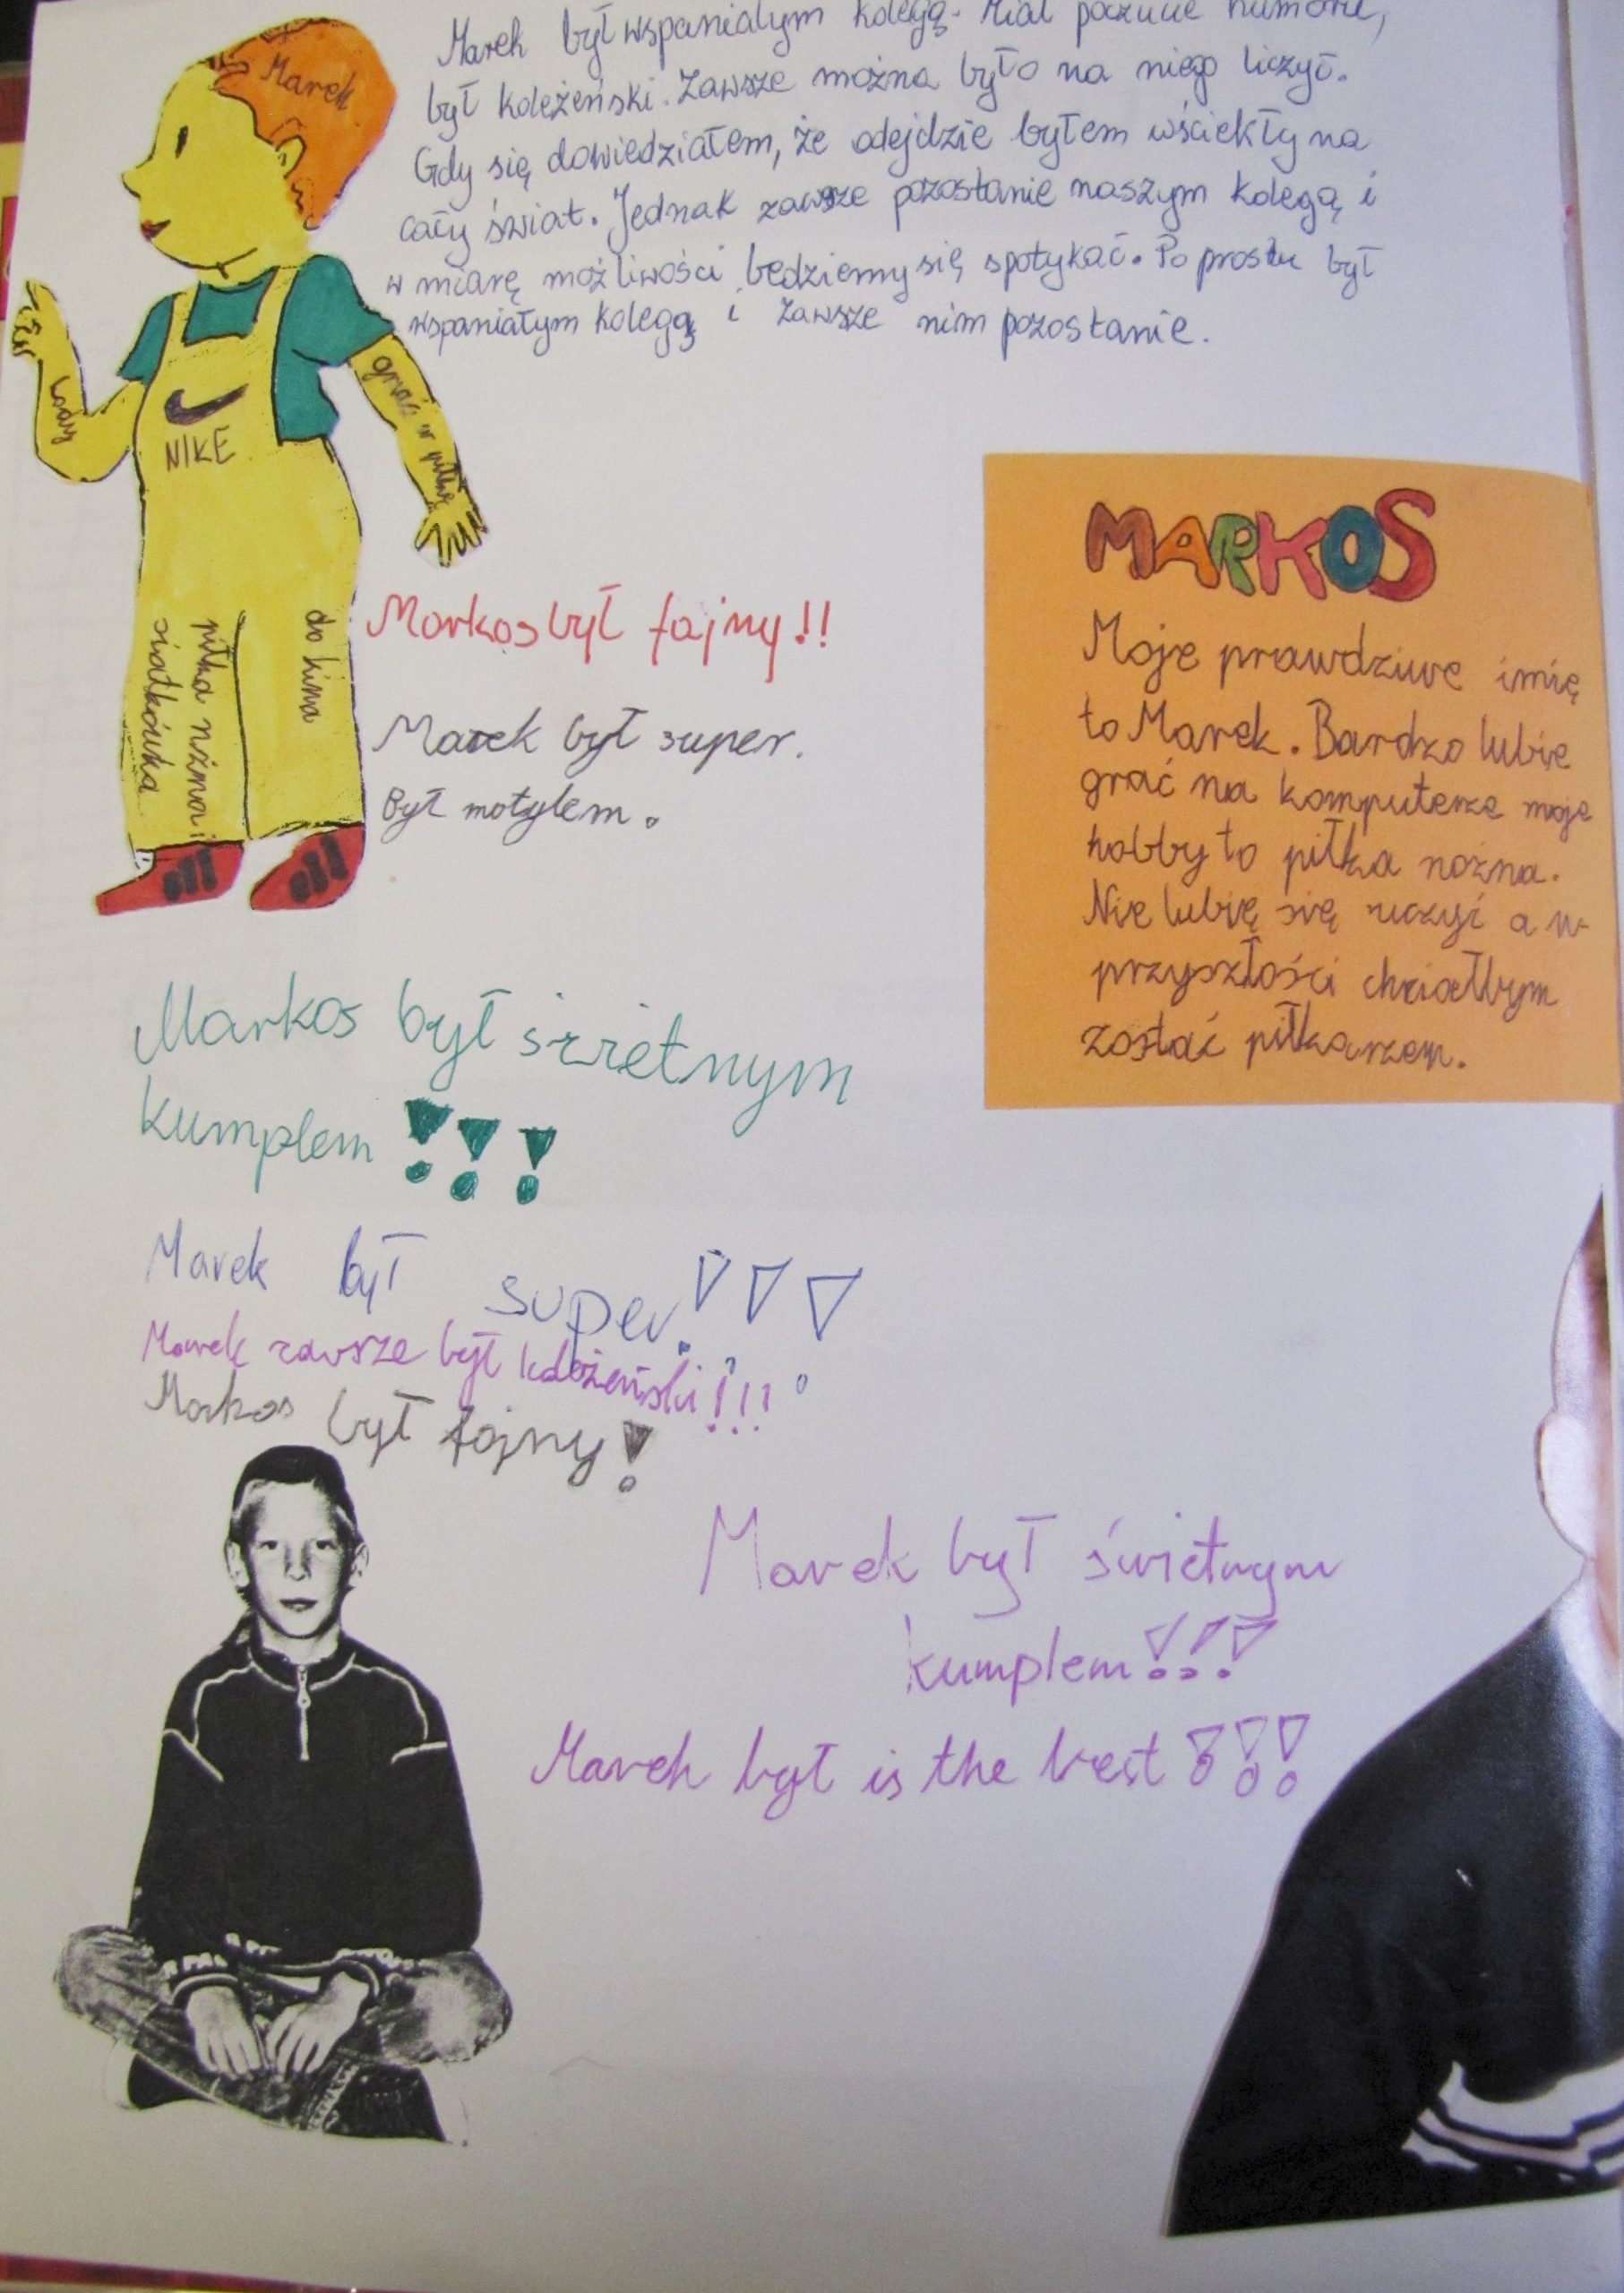 Marek był wspaniałym kolegą. Miał poczucie humoru,
był koleżeński. Zawsze można było na niego liczyć.
Gdy się dowiedziałem, że odejdzie byłem wściekły na
cały świat. Jednak zawsze pozostanie naszym kolegą i
w miarę możliwości będziemy się spotykać. Po prostu był
wspaniałym kolegą i zawsze nim pozostanie.
Marek
lody
grać w piłkę
NIKE
do kina
piłka nożna i
siatkówka
Markos był fajny!!
Marek był super.
Był motylem.
MARKOS
Moje prawdziwe imię
to Marek. Bardzo lubię
grać na komputerze moje
hobby to piłka nożna.
Nie lubię się uczyć a w
przyszłości chciałbym
zostać piłkarzem.
Markos był świetnym
kumplem!!!
Marek był super!!!
Marek zawsze był koleżeński!!!
Markos był fajny!
Marek był świetnym
kumplem!!!
Marek był is the best!!!